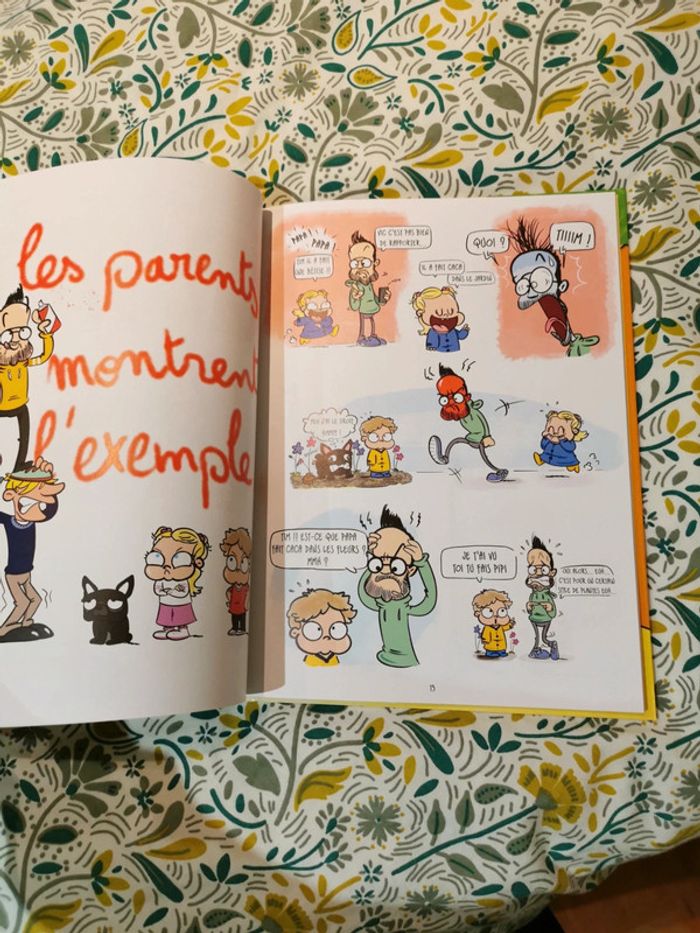 les parents
montrent
l'exemple
PAPA
PAPA !
TIM IL A FAIT
UNE BÊTISE !!
VIC C'EST PAS BIEN
DE RAPPORTER.
IL A FAIT CACA
DANS LE JARDIN
QUOI ?
TIIIIM !
MOI J'AI LE DROIT
HMM !
TIM !! EST-CE QUE PAPA
FAIT CACA DANS LES FLEURS ?
MMM ?
JE T'AI VU
TOI TU FAIS PIPI
OUI ALORS... EUH...
C'EST POUR UN CERTAIN
TYPE DE PLANTES EUH...
13